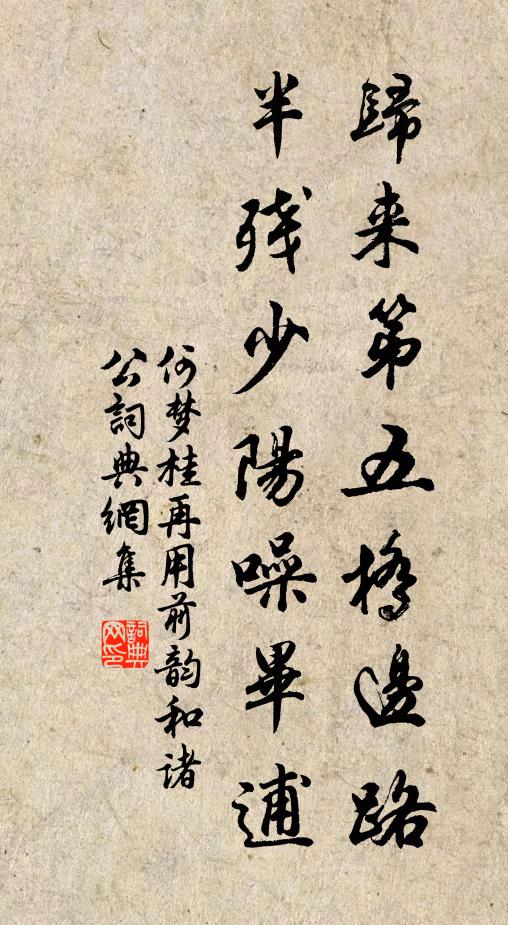 歸来第五橋邊路
半残少陽噪畢逋
何梦桂再用前韵和诸
公詞典網集
詞典网印